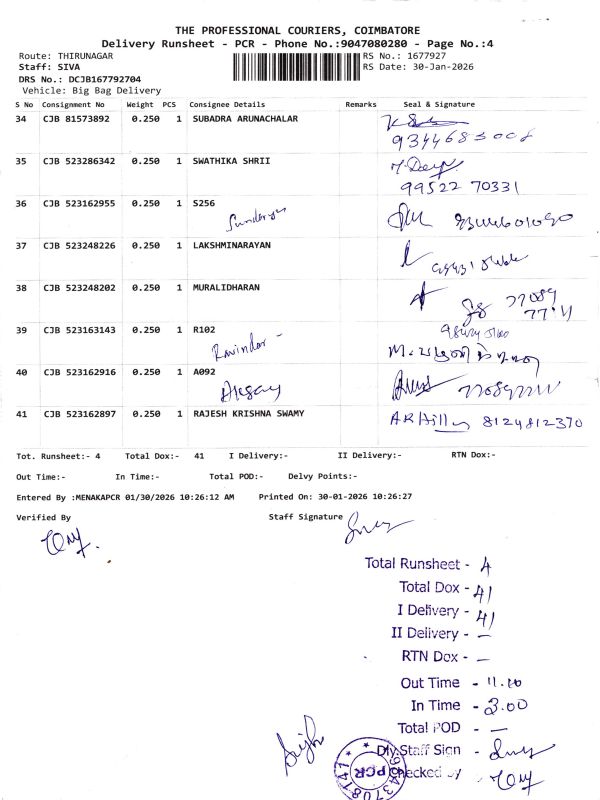 THE PROFESSIONAL COURIERS, COIMBATORE
Delivery Runsheet - PCR - Phone No.:9047080280 - Page No.:4
Route: THIRUNAGAR
Staff: SIVA
DRS No.: DCJB167792704
Vehicle: Big Bag Delivery
RS No.: 1677927
RS Date: 30-Jan-2026
S No Consignment No Weight PCS Consignee Details Remarks Seal & Signature
34 CJB 81573892 0.250 1 SUBADRA ARUNACHALAR
35 CJB 523286342 0.250 1 SWATHIKA SHRII
99522 70331
36 CJB 523162955 0.250 1 S256
37 CJB 523248226 0.250 1 LAKSHMINARAYAN
38 CJB 523248202 0.250 1 MURALIDHARAN
39 CJB 523163143 0.250 1 R102
Ravinder -
40 CJB 523162916 0.250 1 A092
Akshay
41 CJB 523162897 0.250 1 RAJESH KRISHNA SWAMY
8124812370
Tot. Runsheet:- 4 Total Dox:- 41 I Delivery:- II Delivery:- RTN Dox:-
Out Time:- In Time:- Total POD:- Delvy Points:-
Entered By :MENAKAPCR 01/30/2026 10:26:12 AM Printed On: 30-01-2026 10:26:27
Verified By Staff Signature
Total Runsheet - 4
Total Dox - 41
I Delivery - 41
II Delivery - —
RTN Dox - —
Out Time - 11.10
In Time - 3.00
Total POD - —
Dly.Staff Sign -
Checked by -
PCR